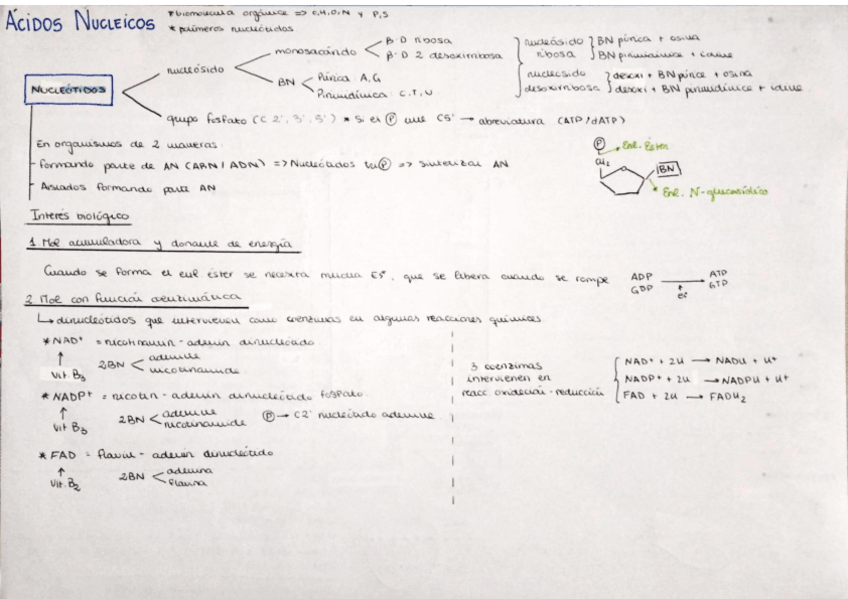 ÁCIDOS NUCLEICOS
* biomolécula orgánica => C,H,O,N y P,S
* polímeros nucleótidos
NUCLEÓTIDOS
nucleósido
monosacárido
β-D ribosa
β-D 2 desoxirribosa
BN
Púrica A,G
Pirimidínica C,T,U
nucleósido ribosa
BN púrica + osina
BN pirimidínica + idina
nucleósido desoxirribosa
desoxi + BN púrica + osina
desoxi + BN pirimidínica + idina
grupo fosfato (C 2', 3', 5') * Si el P une C5' → abreviatura (ATP/dATP)
En organismos de 2 maneras:
- Formando parte de AN (ARN/ADN) => Nucleótidos tri P => sintetizar AN
- Aislados formando parte AN
P
Enl. Éster
CH2
BN
Enl. N-glucosídico
Interés biológico
1 Mol acumuladora y donante de energía
Cuando se forma el enl. éster se necesita mucha Eª, que se libera cuando se rompe
ADP → ATP
GDP GTP
Eª
2 Mol con función coenzimática
↳ dinucleótidos que intervienen como coenzimas en algunas reacciones químicas
* NAD+ = nicotinamin - adenin dinucleótido
↑
Vit. B3
2BN
adenina
nicotinamida
* NADP+ = nicotin - adenin dinucleótido fosfato
↑
Vit B3
2BN
adenina
nicotinamida
P → C2' nucleótido adenina
* FAD = flavin - adenin dinucleótido
↑
Vit. B2
2BN
adenina
flavina
3 coenzimas
intervienen en
reacc oxidación-reducción
NAD+ + 2H → NADH + H+
NADP+ + 2H → NADPH + H+
FAD + 2H → FADH2